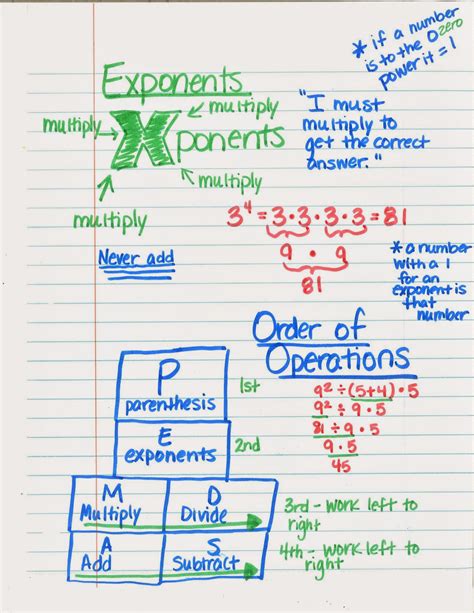 * if a number
is to the 0 zero
power it = 1
Exponents
multiply
multiply
Xponents
multiply
multiply
"I must
multiply to
get the correct
answer."
3⁴ = 3·3·3·3 = 81
9 · 9
81
Never add
* a number
with a 1
for an
exponent is
that
number
Order of
Operations
P
parenthesis
1st
E
exponents
2nd
M
Multiply
D
Divide
3rd - work left to
right
A
Add
S
Subtract
4th - work left to
right
9² ÷ (5+4) · 5
9² ÷ 9 · 5
81 ÷ 9 · 5
9 · 5
45